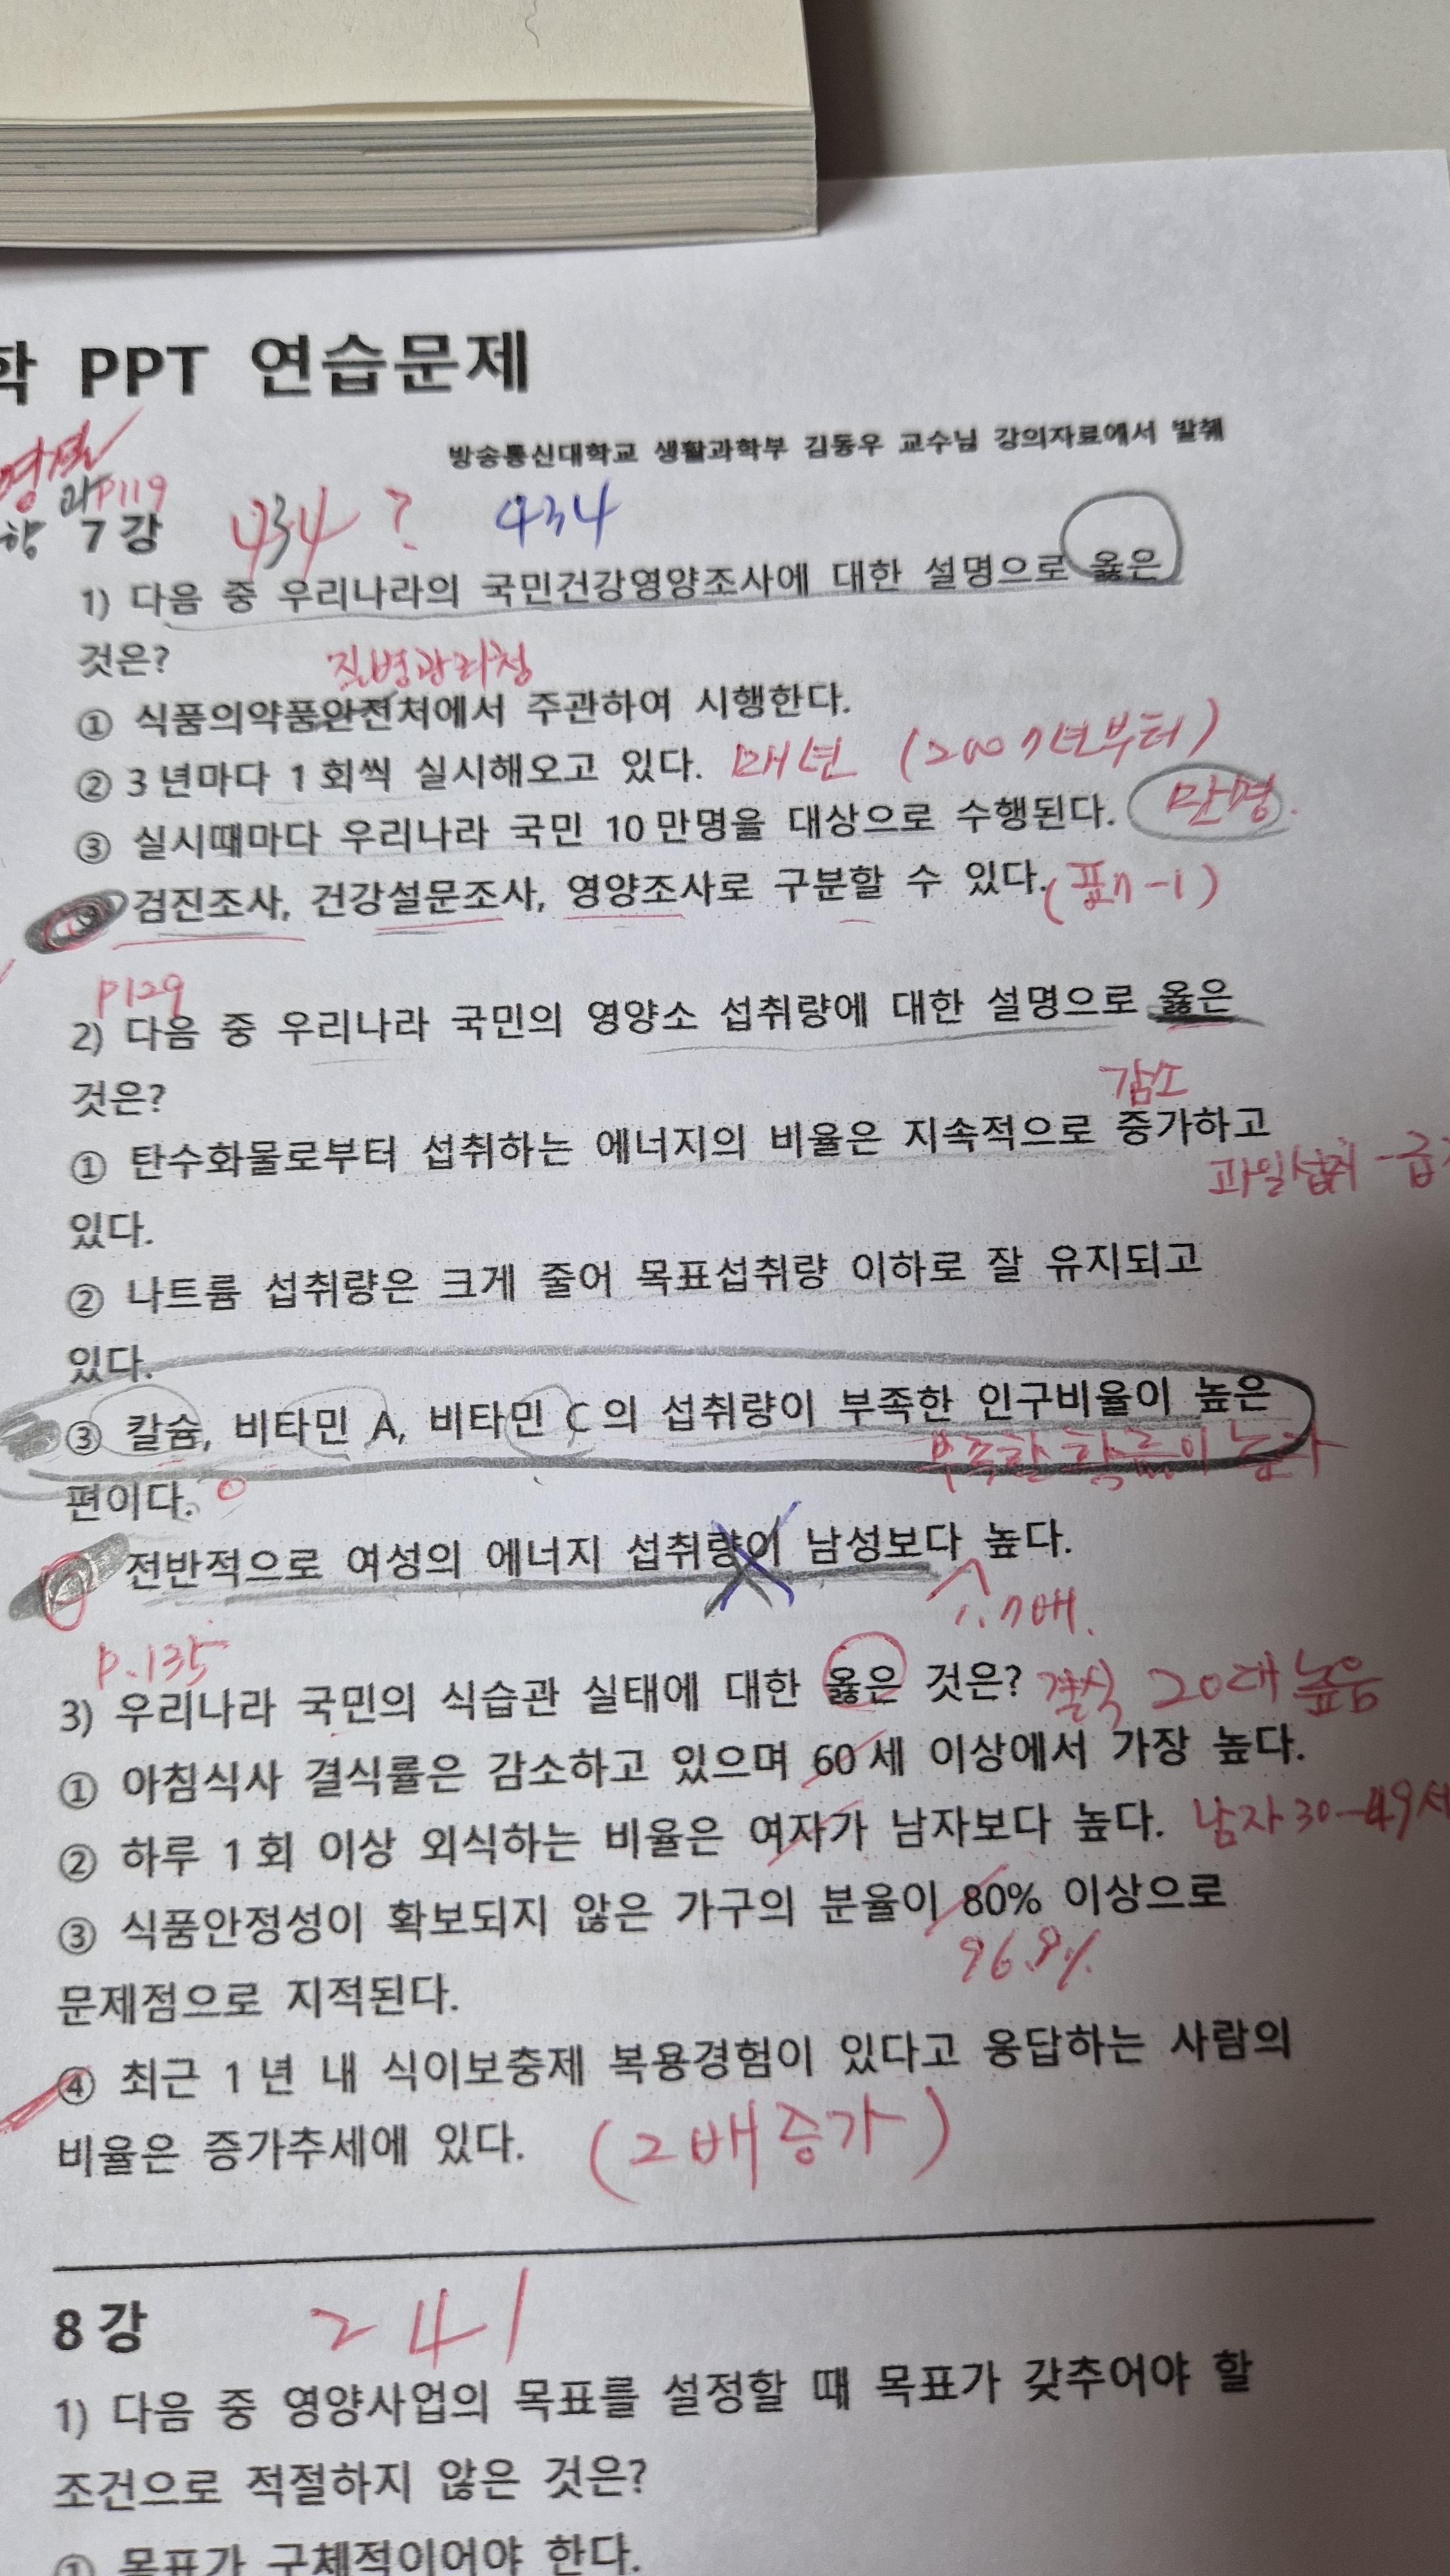 학 PPT 연습문제
방송통신대학교 생활과학부 김동우 교수님 강의자료에서 발췌
P119
7강 434 ? 434
1) 다음 중 우리나라의 국민건강영양조사에 대한 설명으로 옳은
것은?
질병관리청
① 식품의약품안전처에서 주관하여 시행한다.
② 3년마다 1회씩 실시해오고 있다. 매년 (2007년부터)
③ 실시때마다 우리나라 국민 10만명을 대상으로 수행된다. 만명.
검진조사, 건강설문조사, 영양조사로 구분할 수 있다. (표7-1)
P129
2) 다음 중 우리나라 국민의 영양소 섭취량에 대한 설명으로 옳은
것은?
감소
① 탄수화물로부터 섭취하는 에너지의 비율은 지속적으로 증가하고
과일섭취
있다.
② 나트륨 섭취량은 크게 줄어 목표섭취량 이하로 잘 유지되고
있다.
③ 칼슘, 비타민 A, 비타민 C의 섭취량이 부족한 인구비율이 높은
부족한 확률이 높다
편이다. O
전반적으로 여성의 에너지 섭취량이 남성보다 높다.
1.7배.
P.135
3) 우리나라 국민의 식습관 실태에 대한 옳은 것은? 결식 20대 높음
① 아침식사 결식률은 감소하고 있으며 60세 이상에서 가장 높다.
② 하루 1회 이상 외식하는 비율은 여자가 남자보다 높다. 남자 30-49세
③ 식품안정성이 확보되지 않은 가구의 분율이 80% 이상으로
96.9%
문제점으로 지적된다.
④ 최근 1년 내 식이보충제 복용경험이 있다고 응답하는 사람의
비율은 증가추세에 있다. (2배 증가)
8강 241
1) 다음 중 영양사업의 목표를 설정할 때 목표가 갖추어야 할
조건으로 적절하지 않은 것은?
① 목표가 구체적이어야 한다.